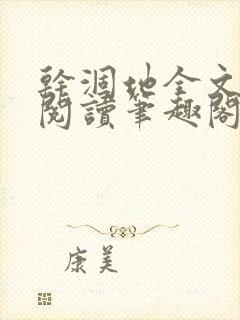 幹涸地全文
閱讀筆趣閣
康美